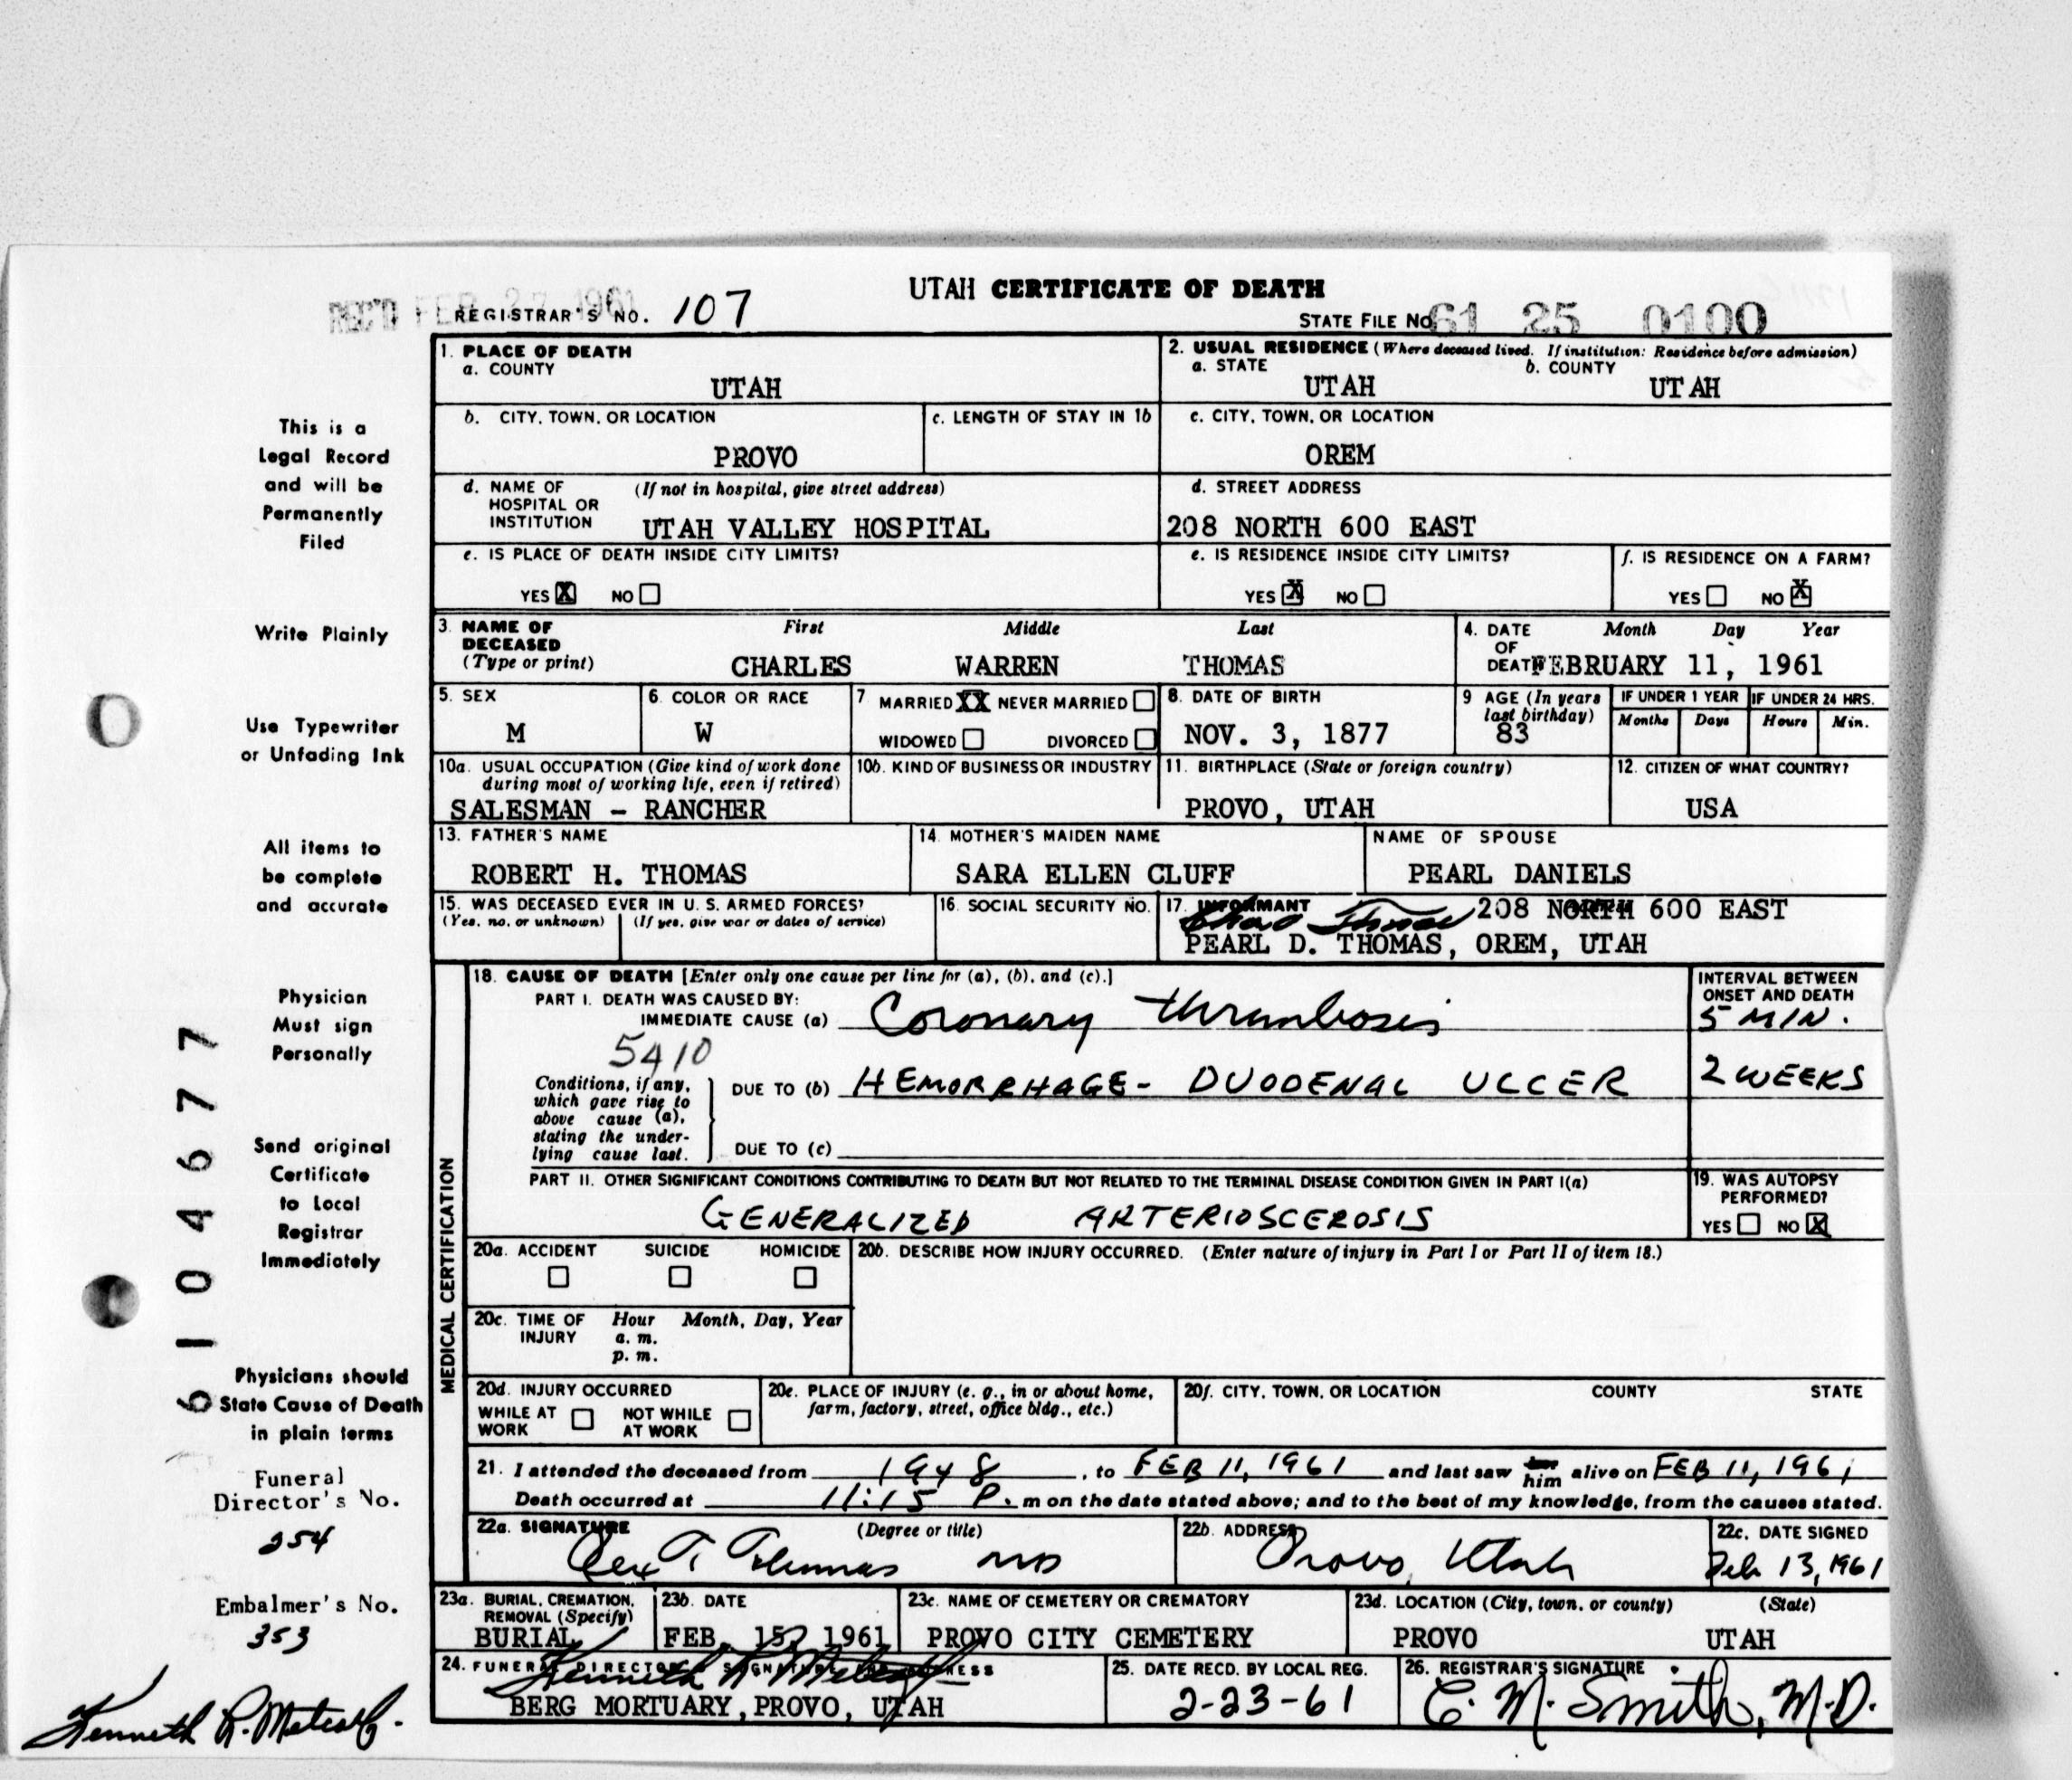 UTAH CERTIFICATE OF DEATH
REC'D FEB 27 1961
REGISTRAR'S NO. 107
STATE FILE NO. 61 25 0100
1. PLACE OF DEATH
a. COUNTY
UTAH
2. USUAL RESIDENCE (Where deceased lived. If institution: Residence before admission)
a. STATE
UTAH
b. COUNTY
UTAH
b. CITY, TOWN, OR LOCATION
PROVO
c. LENGTH OF STAY IN 1b
c. CITY, TOWN, OR LOCATION
OREM
d. NAME OF HOSPITAL OR INSTITUTION
(If not in hospital, give street address)
UTAH VALLEY HOSPITAL
d. STREET ADDRESS
208 NORTH 600 EAST
e. IS PLACE OF DEATH INSIDE CITY LIMITS?
YES X NO
e. IS RESIDENCE INSIDE CITY LIMITS?
YES X NO
f. IS RESIDENCE ON A FARM?
YES NO X
3. NAME OF DECEASED
(Type or print)
First Middle Last
CHARLES WARREN THOMAS
4. DATE OF DEATH
Month Day Year
FEBRUARY 11, 1961
5. SEX
M
6. COLOR OR RACE
W
7 MARRIED XX NEVER MARRIED
WIDOWED DIVORCED
8. DATE OF BIRTH
NOV. 3, 1877
9 AGE (In years last birthday)
83
IF UNDER 1 YEAR
Months Days
IF UNDER 24 HRS.
Hours Min.
10a. USUAL OCCUPATION (Give kind of work done during most of working life, even if retired)
SALESMAN - RANCHER
10b. KIND OF BUSINESS OR INDUSTRY
11. BIRTHPLACE (State or foreign country)
PROVO, UTAH
12. CITIZEN OF WHAT COUNTRY?
USA
13. FATHER'S NAME
ROBERT H. THOMAS
14. MOTHER'S MAIDEN NAME
SARA ELLEN CLUFF
NAME OF SPOUSE
PEARL DANIELS
15. WAS DECEASED EVER IN U. S. ARMED FORCES?
(Yes, no, or unknown) (If yes, give war or dates of service)
16. SOCIAL SECURITY NO.
17. INFORMANT
208 NORTH 600 EAST
PEARL D. THOMAS, OREM, UTAH
MEDICAL CERTIFICATION
18. CAUSE OF DEATH [Enter only one cause per line for (a), (b), and (c).]
INTERVAL BETWEEN ONSET AND DEATH
PART I. DEATH WAS CAUSED BY:
IMMEDIATE CAUSE (a) Coronary thrombosis
5 MIN.
5410
Conditions, if any, which gave rise to above cause (a), stating the underlying cause last.
DUE TO (b) HEMORRHAGE - DUODENAL ULCER
2 WEEKS
DUE TO (c)
PART II. OTHER SIGNIFICANT CONDITIONS CONTRIBUTING TO DEATH BUT NOT RELATED TO THE TERMINAL DISEASE CONDITION GIVEN IN PART I(a)
GENERALIZED ARTERIOSCEROSIS
19. WAS AUTOPSY PERFORMED?
YES NO X
20a. ACCIDENT SUICIDE HOMICIDE
20b. DESCRIBE HOW INJURY OCCURRED. (Enter nature of injury in Part I or Part II of item 18.)
20c. TIME OF INJURY
Hour Month, Day, Year
a. m.
p. m.
20d. INJURY OCCURRED
WHILE AT WORK NOT WHILE AT WORK
20e. PLACE OF INJURY (e. g., in or about home, farm, factory, street, office bldg., etc.)
20f. CITY, TOWN, OR LOCATION COUNTY STATE
21. I attended the deceased from 1948, to FEB 11, 1961 and last saw her him alive on FEB 11, 1961
Death occurred at 11:15 P. m on the date stated above; and to the best of my knowledge, from the causes stated.
22a. SIGNATURE (Degree or title)
Rex T. Thomas MD
22b. ADDRESS
Provo, Utah
22c. DATE SIGNED
Feb. 13, 1961
23a. BURIAL, CREMATION, REMOVAL (Specify)
BURIAL
23b. DATE
FEB. 15, 1961
23c. NAME OF CEMETERY OR CREMATORY
PROVO CITY CEMETERY
23d. LOCATION (City, town, or county) (State)
PROVO UTAH
24. FUNERAL DIRECTOR'S SIGNATURE ADDRESS
Kenneth R. Metcalf
BERG MORTUARY, PROVO, UTAH
25. DATE RECD. BY LOCAL REG.
2-23-61
26. REGISTRAR'S SIGNATURE
C. M. Smith, M.D.
This is a
Legal Record
and will be
Permanently
Filed
Write Plainly
Use Typewriter
or Unfading Ink
All items to
be complete
and accurate
Physician
Must sign
Personally
Send original
Certificate
to Local
Registrar
Immediately
Physicians should
State Cause of Death
in plain terms
Funeral
Director's No.
254
Embalmer's No.
353
Kenneth R. Metcalf.
6104677